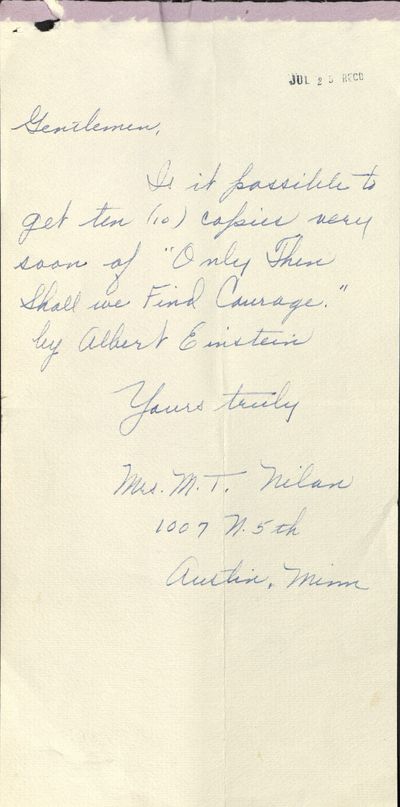 JUL 25 RECD
Gentlemen,
Is it possible to
get ten (10) copies very
soon of "Only Then
Shall we Find Courage."
by Albert Einstein
Yours truly
Mrs. M. T. Nilan
1007 N. 5th
Austin, Minn